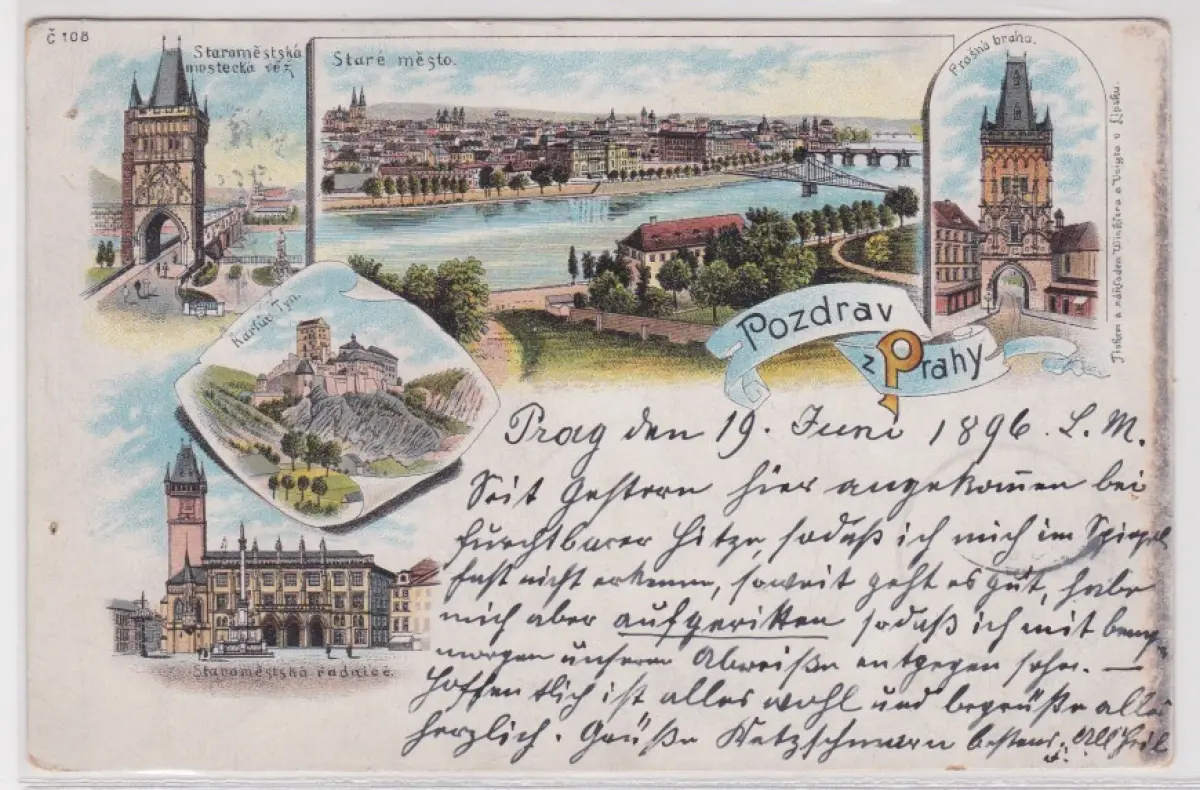 Č 108
Staroměstská
mostecká věž
Staré město.
Prašná brána.
Karlův Týn.
Pozdrav
z Prahy
Staroměstská radnice.
Tiskem a nákladem Winklera a Voigta v Lipsku.
Prag den 19. Juni 1896. L. M.
Seit gestern hier angekommen bei
furchtbarer Hitze, sodaß ich mich im Spiegel
fast nicht erkenne, soweit geht es gut, habe
mich aber aufgeritten sodaß ich mit
morgen unserer Abreise entgegen sehe. —
Hoffentlich ist alles wohl und begrüße alle
herzlich. Grüße bestens.